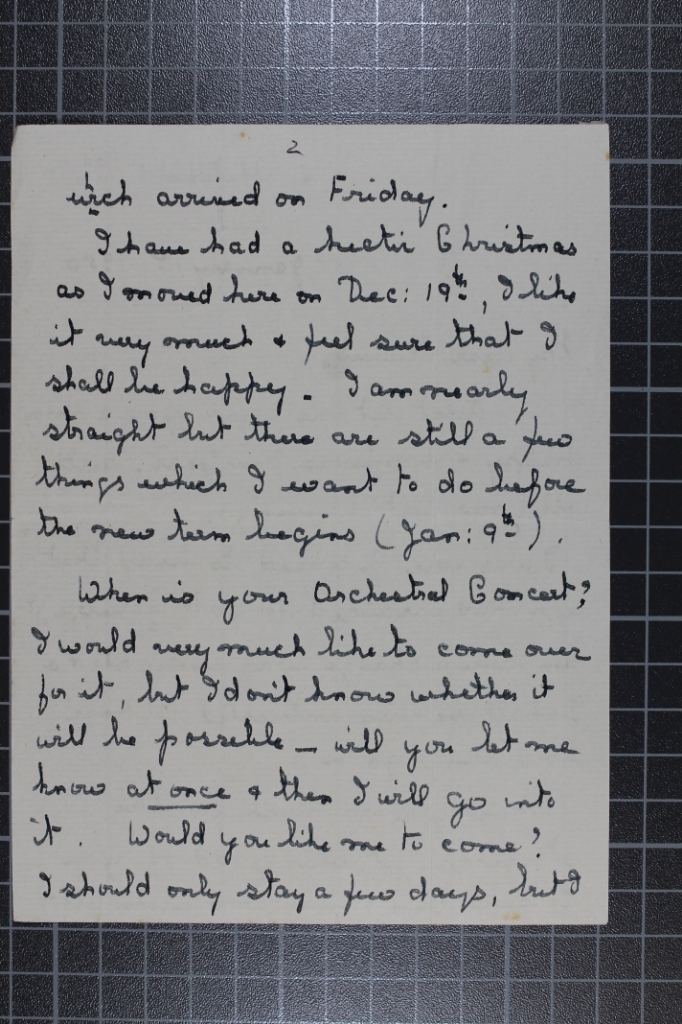 2
which arrived on Friday.
I have had a hectic Christmas
as I moved here on Dec: 19th, I like
it very much & feel sure that I
shall be happy. I am nearly
straight but there are still a few
things which I want to do before
the new term begins (Jan: 9th).
When is your Orchestral Concert?
I would very much like to come over
for it, but I don't know whether it
will be possible – will you let me
know at once & then I will go into
it. Would you like me to come?
I should only stay a few days, but I